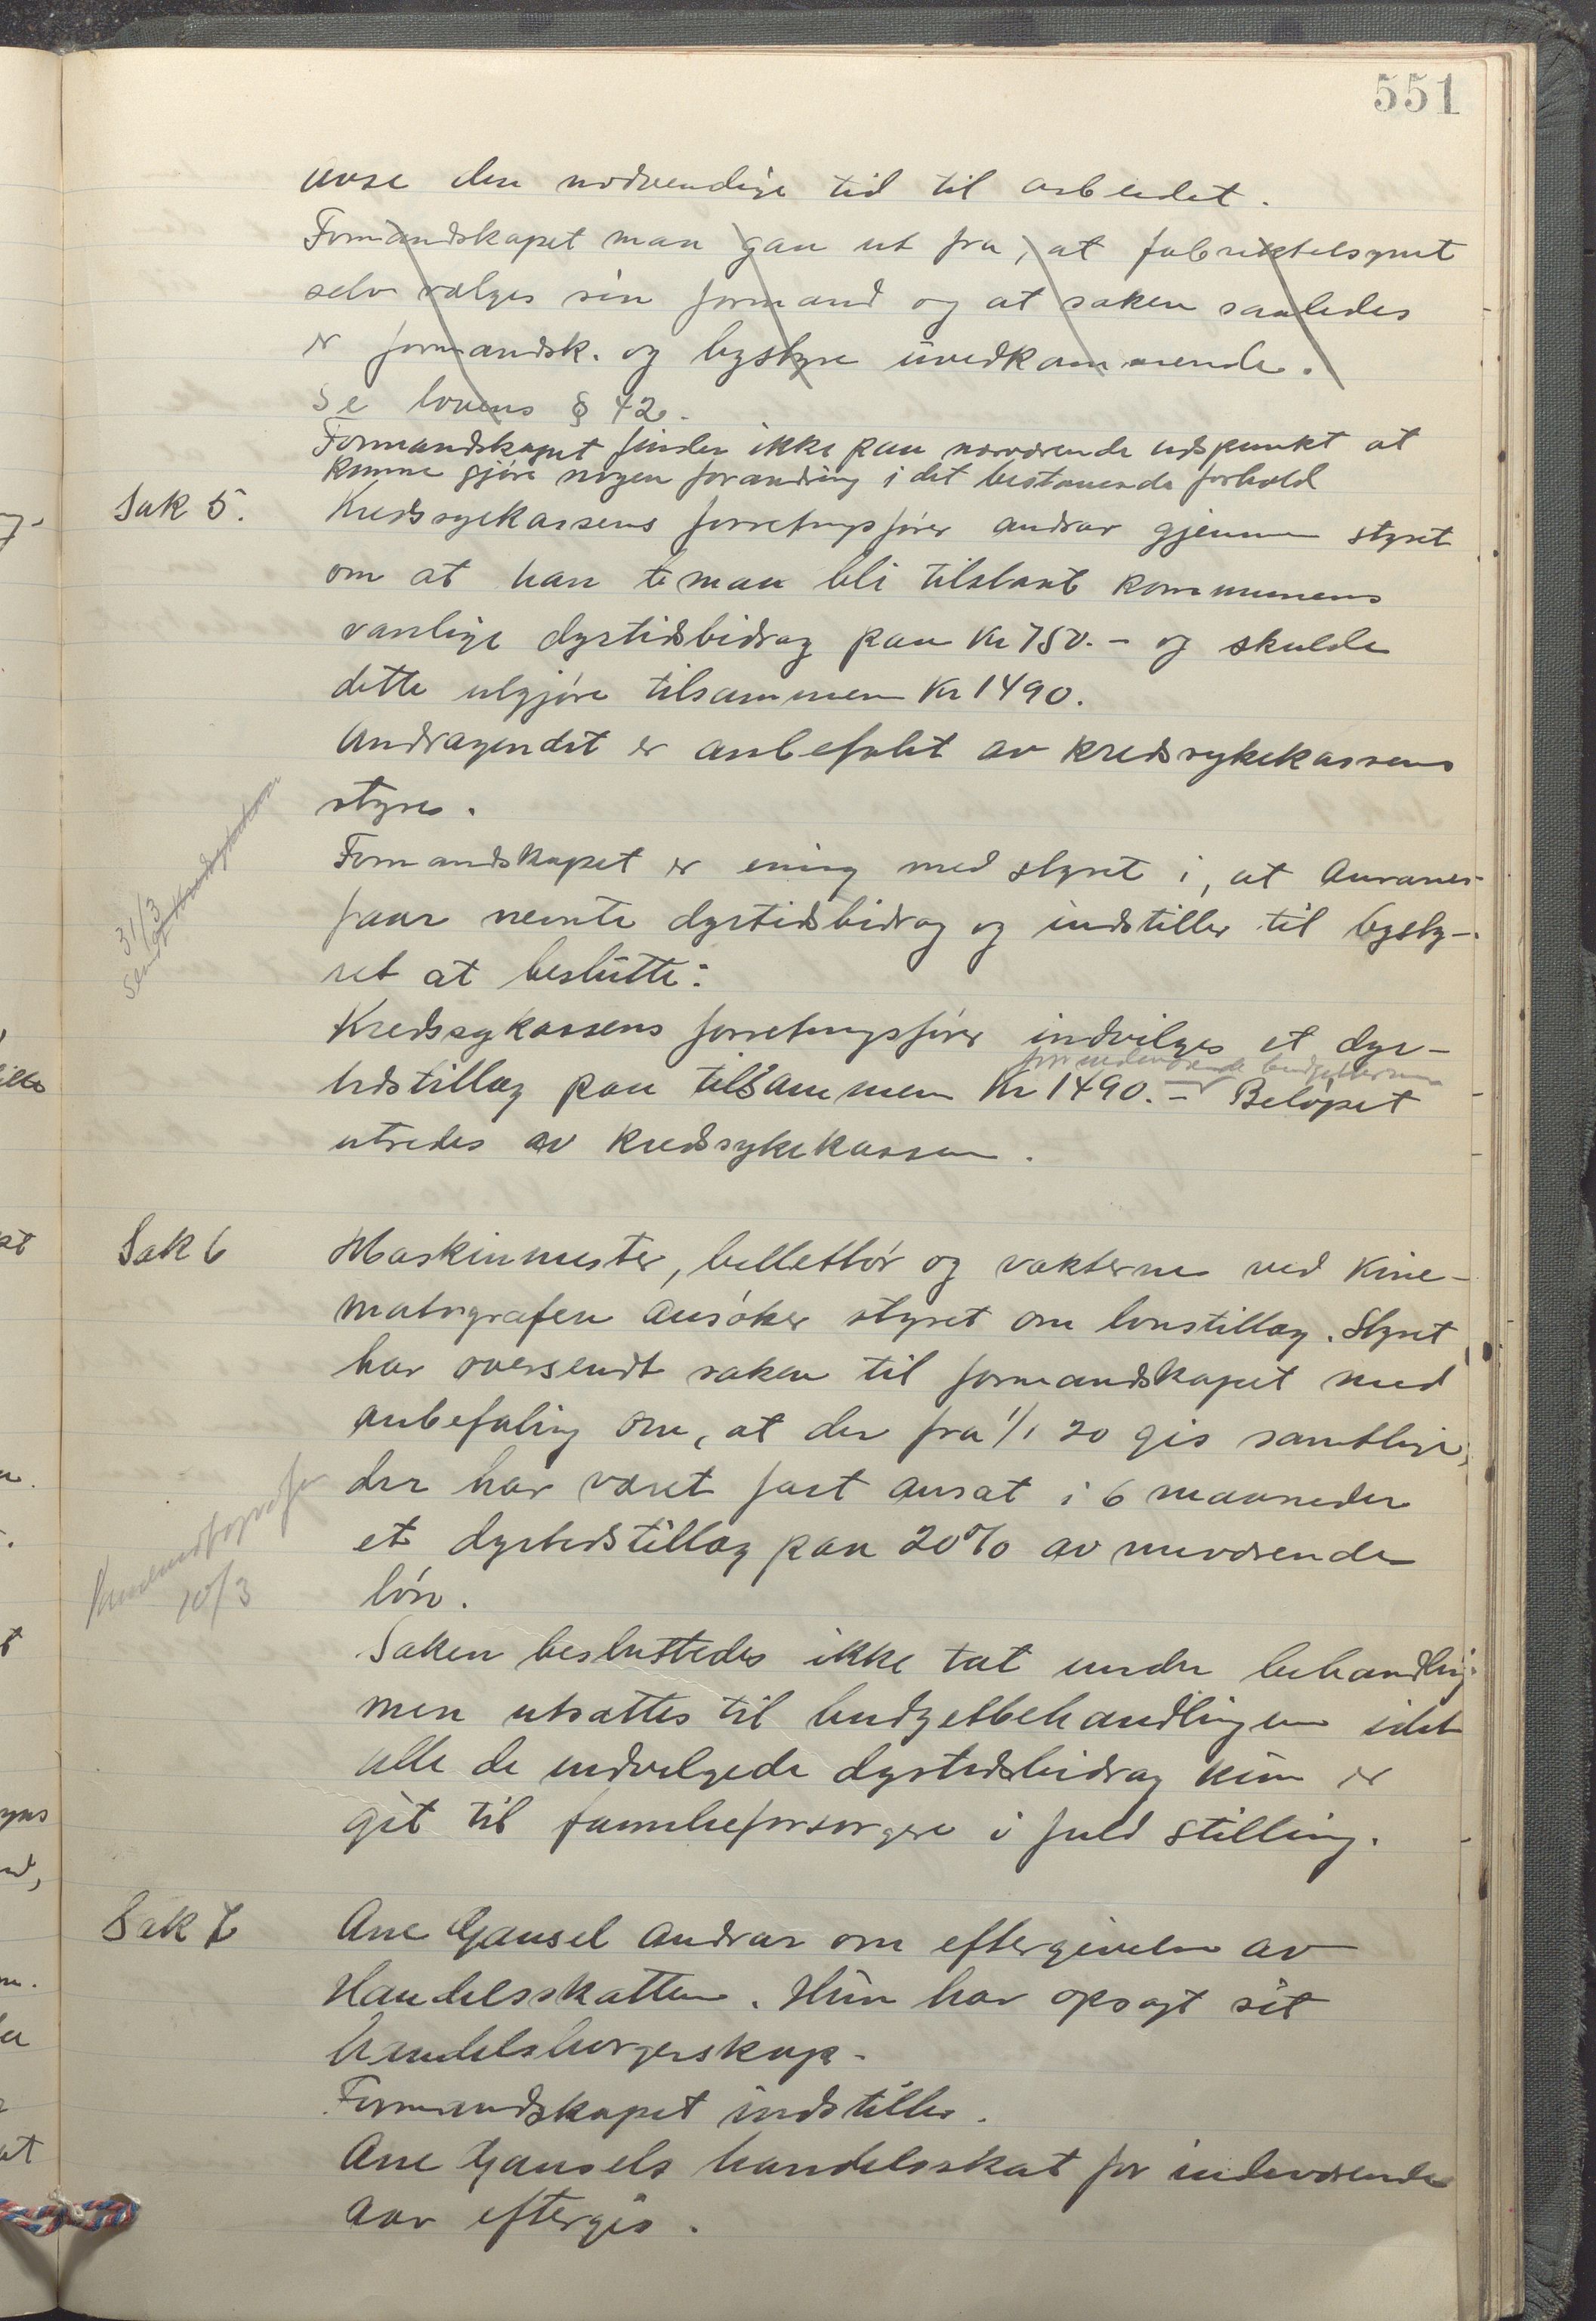 551
avse den nødvendige tid til arbeidet.
Formandskapet maa gaa ut fra, at fabriktilsynet
selv vælges sin formand og at saken saaledes
er formandsk. og bystyre uvedkommende.
Se lovens § 42.
Formandskapet finder ikke paa nærværende tidspunkt at
kunne gjøre nogen forandring i det bestaaende forhold
Sak 5.
Kredssykekassens forretningsfører andrar gjennem styret
om at han maa bli tilstaat kommunens
vanlige dyrtidsbidrag paa Kr 750.- og skulde
dette utgjøre tilsammen Kr 1490.
Andragendet er anbefalet av kredssykekassens
styre.
31/3
Send
Formandskapet er enig med styret i, at
faar nevnte dyrtidsbidrag og indstiller til bysty-
ret at beslutte:
Kredssykassens forretningsfører indvilges et dyr-
for indeværende budgettermin
tidstillæg paa tilsammen Kr 1490.- Beløpet
utredes av kredssykekassen.
Sak 6
Maskinmester, billettør og vakterne ved Kine-
matografen ansøker styret om lønstillæg. Styret
har oversendt saken til formandskapet med
anbefaling om, at der fra 1/1 20 gis samtlige,
der har været fast ansat i 6 maaneder
et dyrtidstillæg paa 20% av nuværende
løn.
Kinematografer
10/3
Saken besluttedes ikke tat under behandling
men utsættes til budgetbehandlingen idet
alle de indvilgede dyrtidsbidrag kun er
git til familieforsørgere i fuld stilling.
Sak 7
Ane Gausel andrar om eftergivelse av
Handelsskatten. Hun har opsagt sit
handelsborgerskap.
Formandskapet indstiller.
Ane Gausels handelsskat for indeværende
aar eftergis.